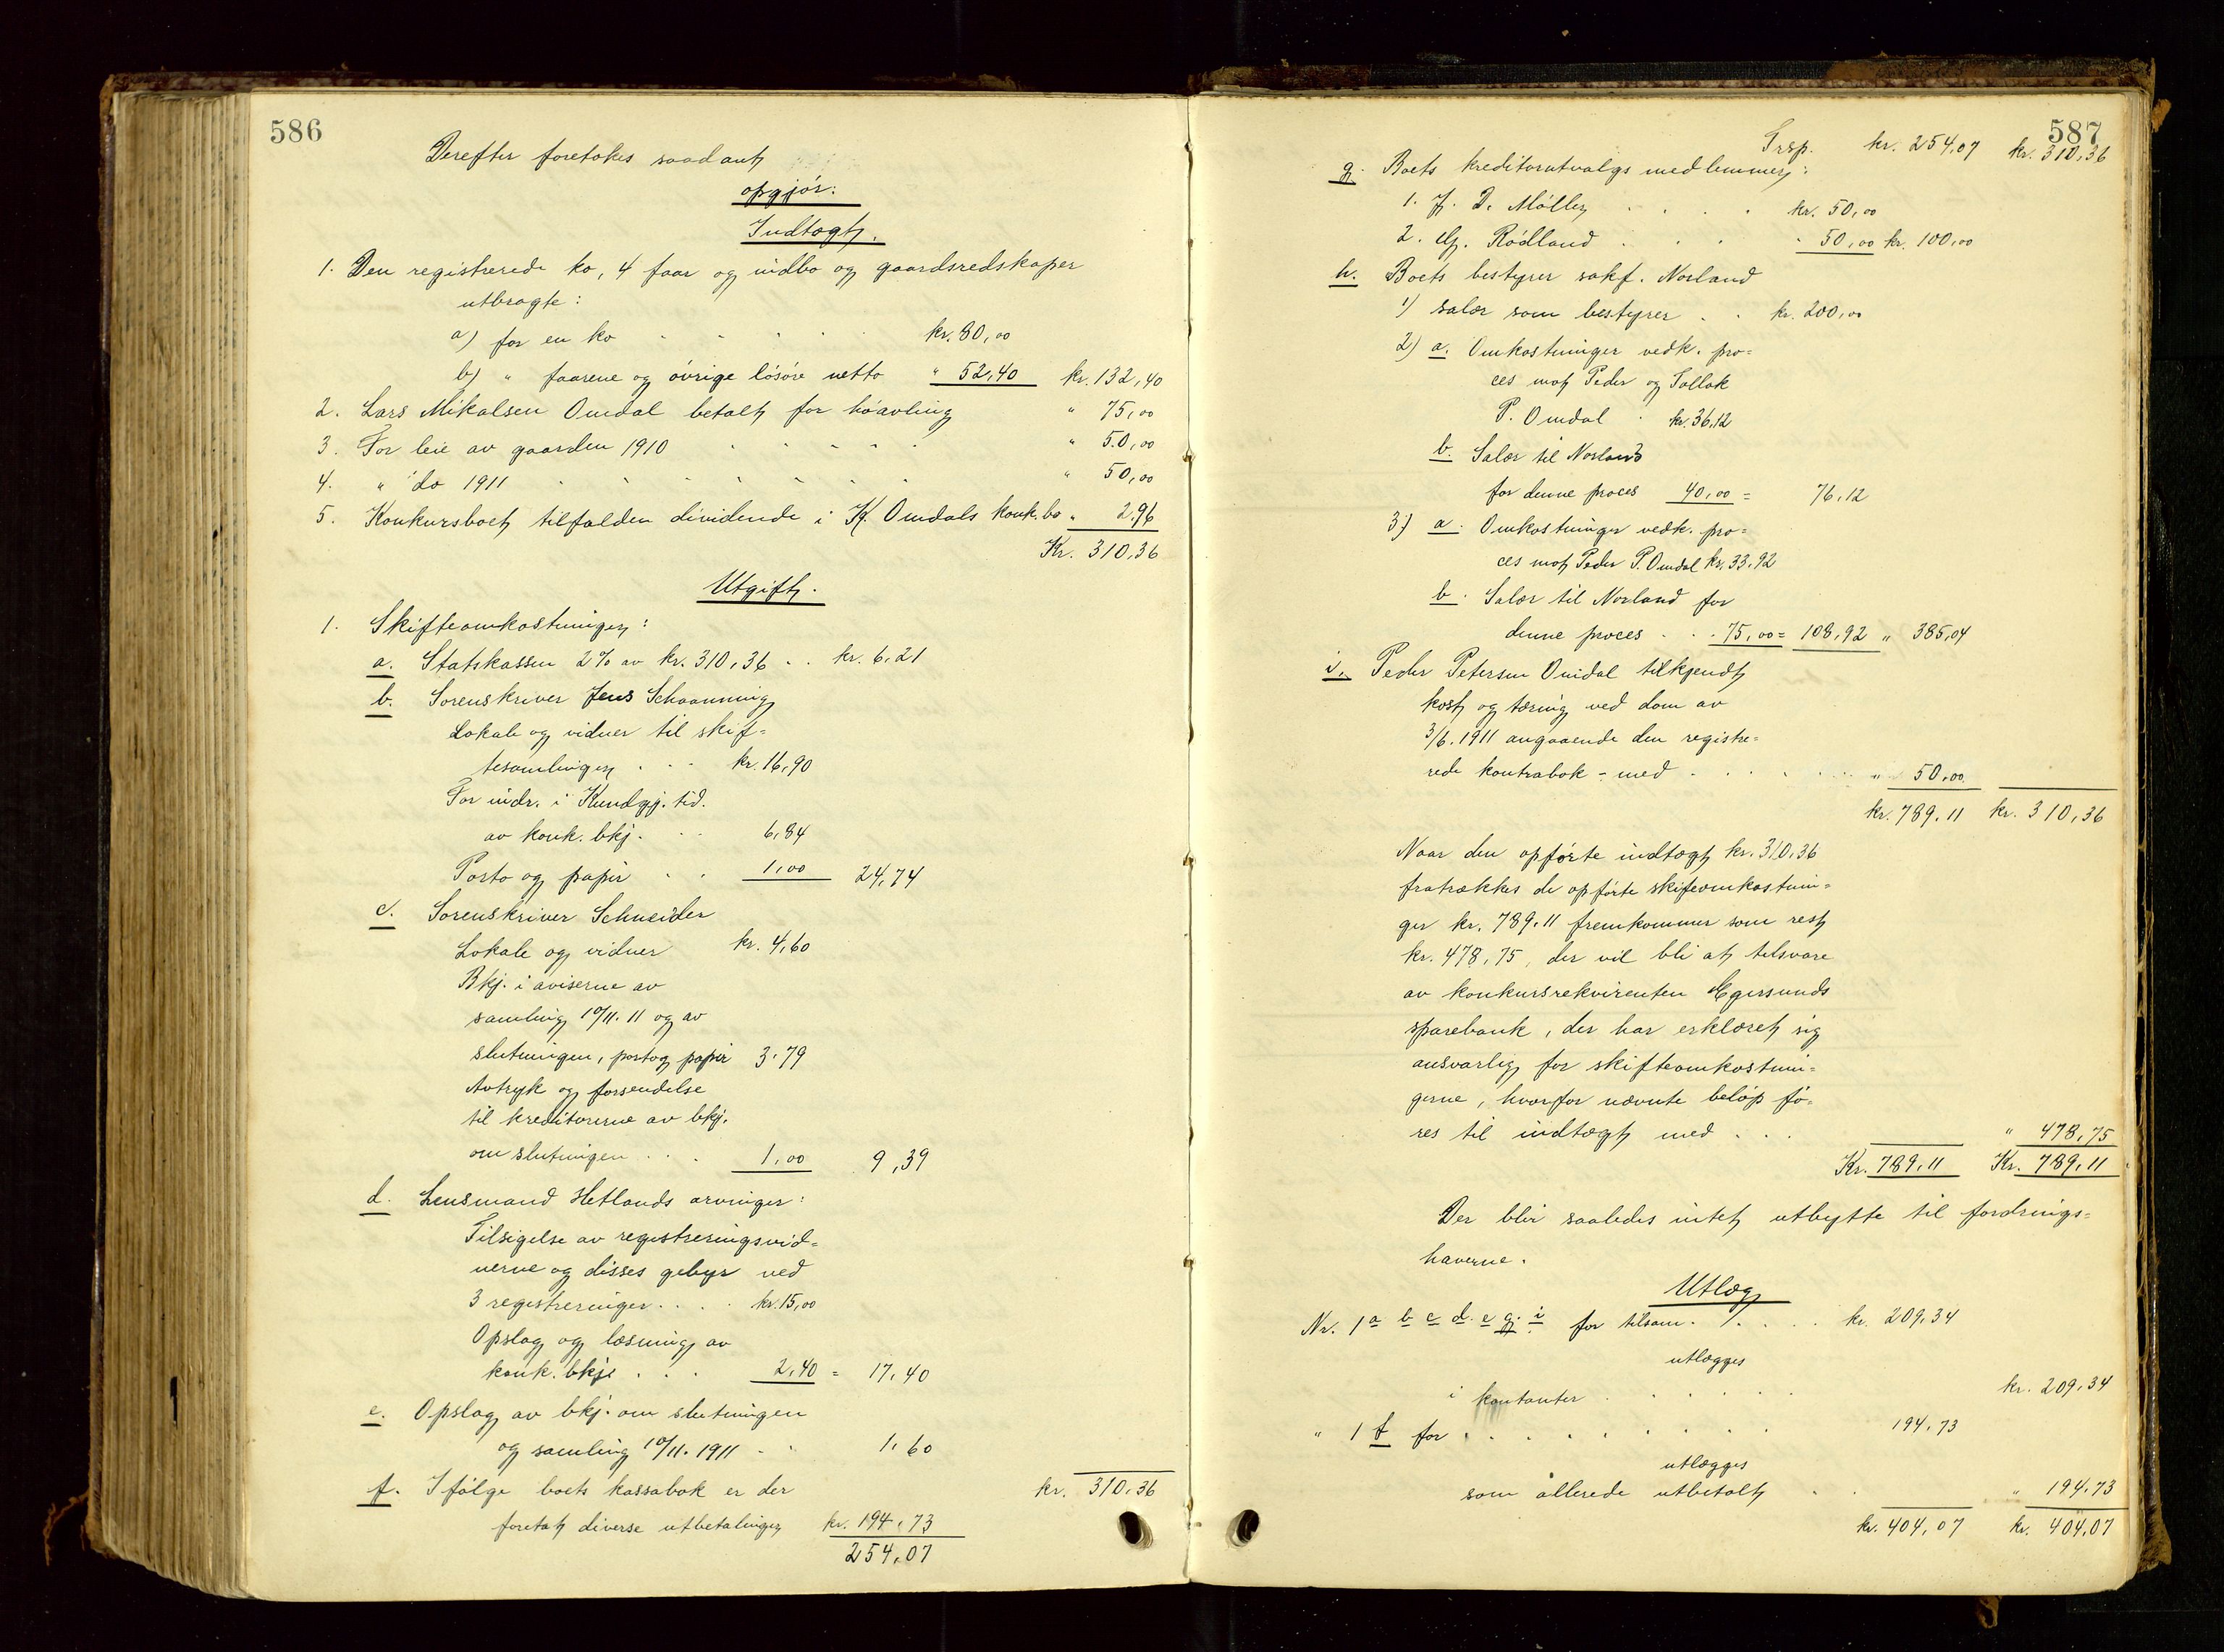 586
Derefter foretokes saadant
opgjør:
Indtægt.
1. Den registrerede ko, 4 faar og indbo og gaardsredskaper
utbragte:
a) for en ko . . . . . kr. 80,00
b) " faarene og øvrige løsøre netto " 52,40 kr. 132,40
2. Lars Mikalsen Omdal betalt for høavling " 75,00
3. For leie av gaarden 1910 . . . . . " 50,00
4. " do 1911 . . . . . . " 50,00
5. Konkursboet tilfalden dividende i K. Omdals konk.bo " 2.96
Kr. 310,36
Utgift.
1. Skifteomkostninger:
a. Statskassen 2% av kr. 310,36 . . kr. 6,21
b. Sorenskriver Jens Schanning
Lokale og vidner til skif=
tesamlinger . . . kr. 16,90
For indr. i Kundgj. tid.
av konk. bkj. . . 6,84
Porto og papir . . 1,00 24,74
c. Sorenskriver Schneider
Lokale og vidner kr. 4,60
Bkj. i aviserne av
samling 10/11. 11 og av
slutningen, porto og papir 3,79
Avtryk og forsendelse
til kreditorerne av bkj.
om slutningen . . . 1,00 9,39
d. Lensmand Hetlands arvinger:
Tilsigelse av registreringsvid=
nerne og disses gebyr ved
3 registreringer . . . . kr. 15,00
Opslag og læsning av
konk. bkje . . . 2,40 = 17,40
e. Opslag av bkj. om slutningen
og samling 10/11. 1911 . . 1,60
f. Ifølge boets kassabok er der kr. 310,36
foretat diverse utbetalinger kr. 194,73
254,07
587
Trsp. kr. 254,07 kr. 310,36
g. Boets kreditorutvalgs medlemmer:
1. J. D. Møller . . . . kr. 50,00
2. Rødland . . . " 50,00 kr. 100,00
h. Boets bestyrer sakf. Norland
1) salær som bestyrer . . kr. 200,00
2) a. Omkostninger vedk. pro=
ces mot Peder og Tollak
P. Omdal . kr. 36,12
b. Salær til Norland
for denne proces 40,00 = 76,12
3) a. Omkostninger vedk. pro=
ces mot Peder P. Omdal kr. 33,92
b. Salær til Norland for
denne proces . . . 75,00 = 108,92 " 385,04
i. Peder Petersen Omdal tilkjendt
kost og tæring ved dom av
3/6. 1911 angaaende den registre=
rede kontrabok - med . . . . . " 50,00
kr. 789,11 kr. 310,36
Naar den opførte indtægt kr. 310,36
fratrækkes de opførte skifteomkostnin=
ger kr. 789,11 fremkommer som rest
kr. 478,75, der vil bli at tilsvare
av konkursrekvirenten Egersunds
sparebank, der har erklæret sig
ansvarlig for skifteomkostnin=
gerne, hvorfor nævnte beløp fø=
res til indtægt med . . . " 478,75
Kr. 789,11 Kr. 789,11
Der blir saaledes intet utbytte til fordrings=
haverne.
Utlæg
Nr. 1 a b c d. e g. i for tilsam. . . . . kr. 209,34
utlægges
i kontanter . . . . . . kr. 209,34
" 1 f for . . . . . . . . 194,73
utlægges
som allerede utbetalt . . " 194,73
kr. 404,07 kr. 404,07